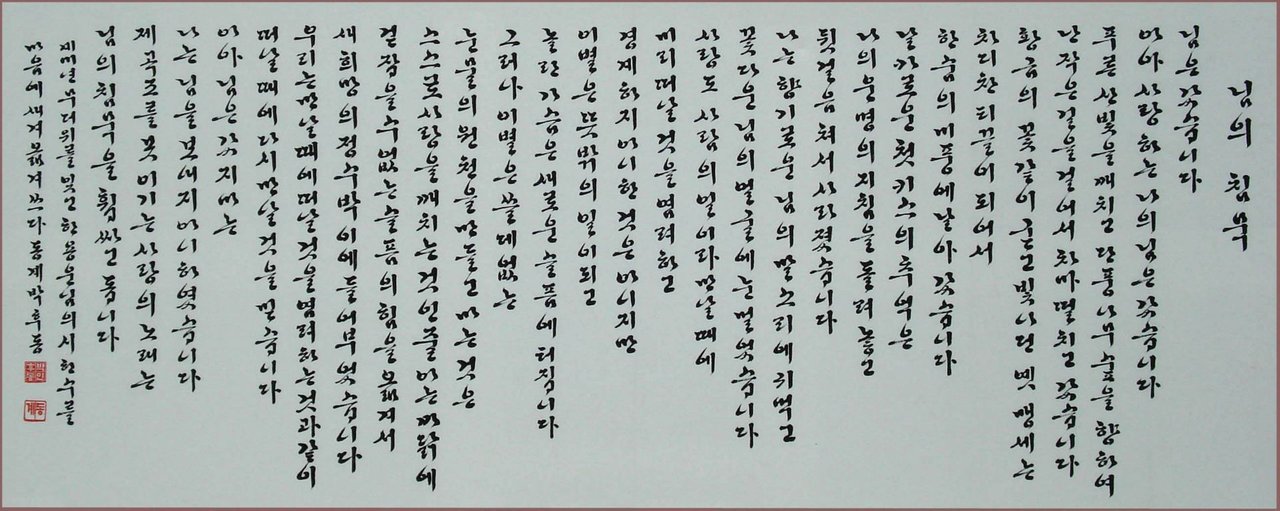 님의 침묵
님은 갔습니다
아아 사랑하는 나의 님은 갔습니다
푸른 산빛을 깨치고 단풍나무숲을 향하여
난 작은 길을 걸어서 차마 떨치고 갔습니다
황금의 꽃같이 굳고 빛나던 옛 맹세는
차디찬 티끌이 되어서
한숨의 미풍에 날아갔습니다
날카로운 첫 키스의 추억은
나의 운명의 지침을 돌려 놓고
뒷걸음쳐서 사라졌습니다
나는 향기로운 님의 말소리에 귀먹고
꽃다운 님의 얼굴에 눈멀었습니다
사랑도 사람의 일이라 만날 때에
미리 떠날 것을 염려하고
경계하지 아니한 것은 아니지만
이별은 뜻밖의 일이 되고
놀란 가슴은 새로운 슬픔에 터집니다
그러나 이별은 쓸데없는
눈물의 원천을 만들고 마는 것은
스스로 사랑을 깨치는 것인 줄 아는 까닭에
걷잡을 수 없는 슬픔의 힘을 옮겨서
새 희망의 정수박이에 들어부었습니다
우리는 만날 때에 떠날 것을 염려하는 것과 같이
떠날 때에 다시 만날 것을 믿습니다
아아 님은 갔지마는
나는 님을 보내지 아니하였습니다
제 곡조를 못 이기는 사랑의 노래는
님의 침묵을 휩싸고 돕니다
무더위를 잊고 한용운님의 시 한수를
마음에 새겨 옮겨 쓰다 동계 박후동